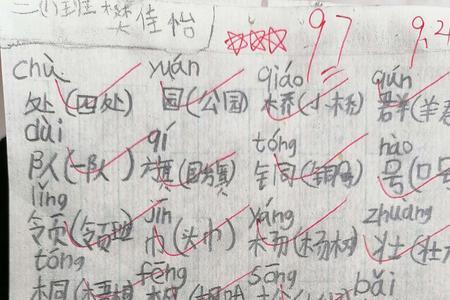 樊佳怡 97 9.2
chù yuán qiáo qún
处(四处) 园(公园) 桥(小桥) 群(羊群
dài qí tóng hào
队(一队) 旗(国旗) 铜(铜号) 号(口号
lǐng jīn yáng zhuàng
领(领巾 巾(头巾) 杨(杨树) 壮(壮
tóng fēng sōng bǎi
桐(梧桐 枫(枫叶